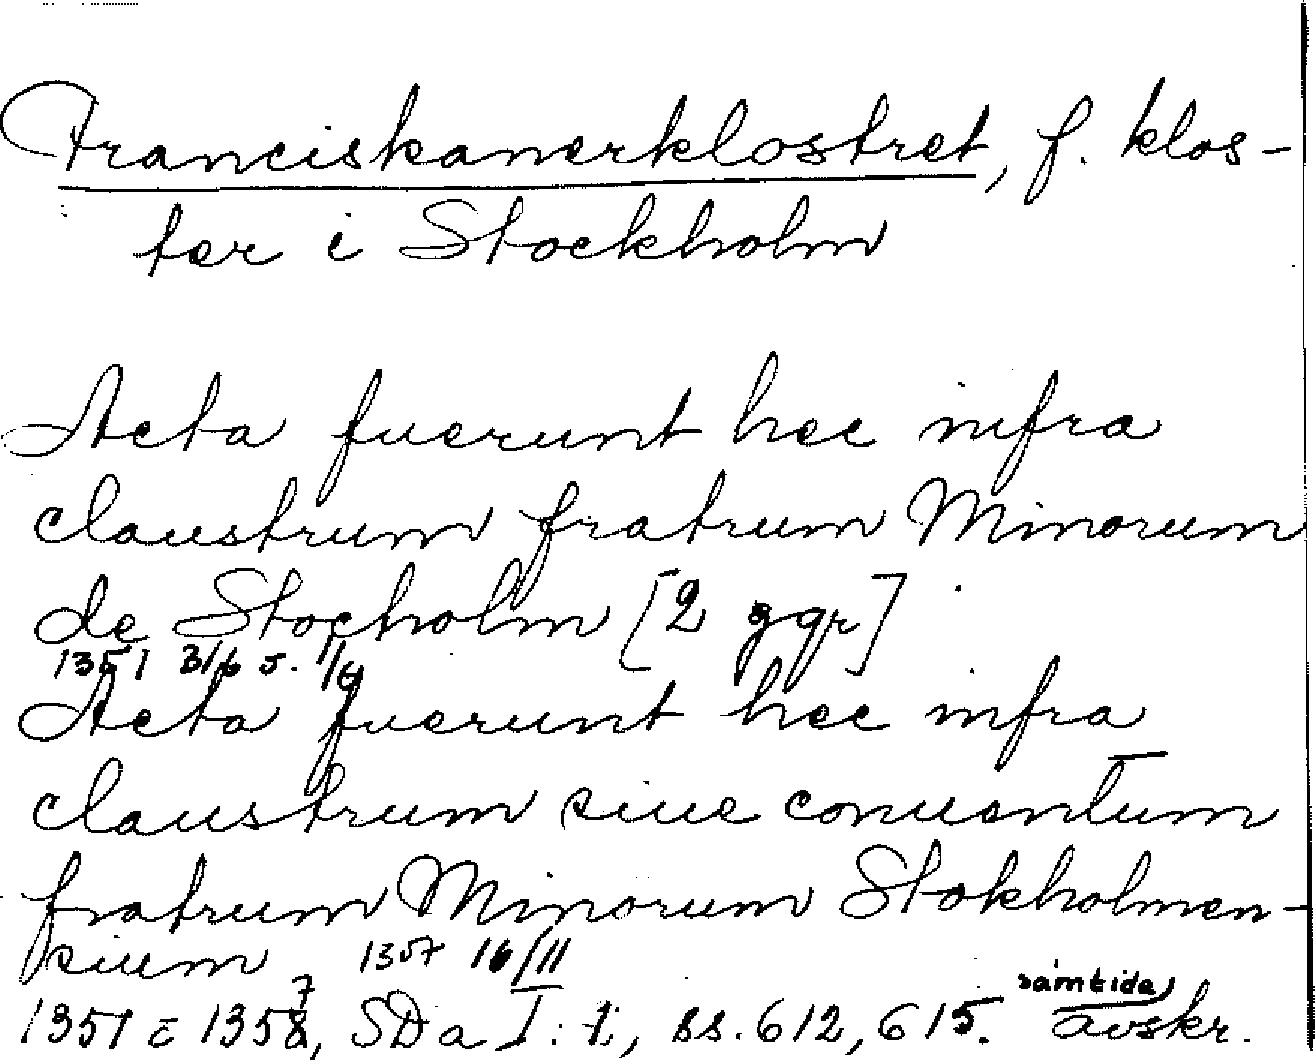 Franciskanerklostret, f. klos-
ter i Stockholm
Acta fuerunt hec infra
claustrum fratrum Minorum
de Stocholm [2 ggr]
1351 3/6 s. 1/6
Acta fuerunt hec infra
claustrum siue conuentum
fratrum Minorum Stokholmen-
sium 1357 16/11
1351 c 1357, SDa I:1, ss. 612, 615. samtida avskr.